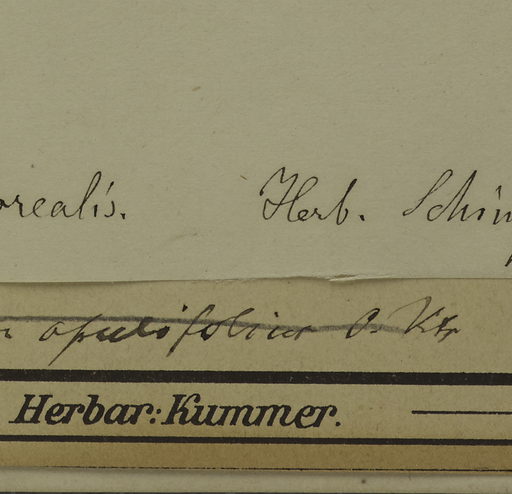 orealis. Herb. Schim
opulifolius O. Ktr
Herbar: Kummer.